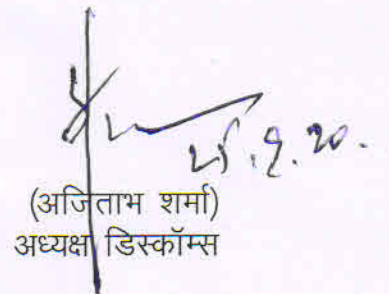 25.9.20.
(अजिताभ शर्मा)
अध्यक्ष डिस्कॉम्स